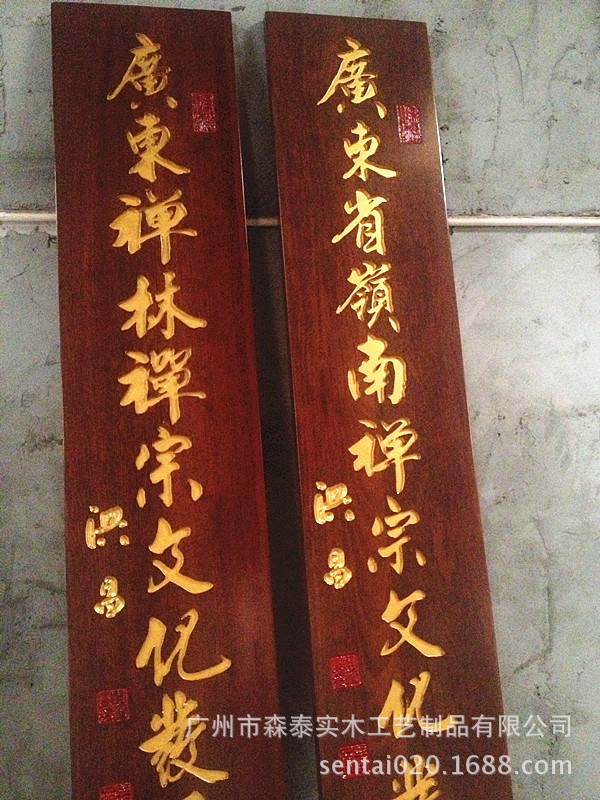 廣東禅林禪宗文化發
洪昌
廣東省嶺南禅宗文化
洪昌
广州市森泰实木工艺制品有限公司
sentai020.1688.com